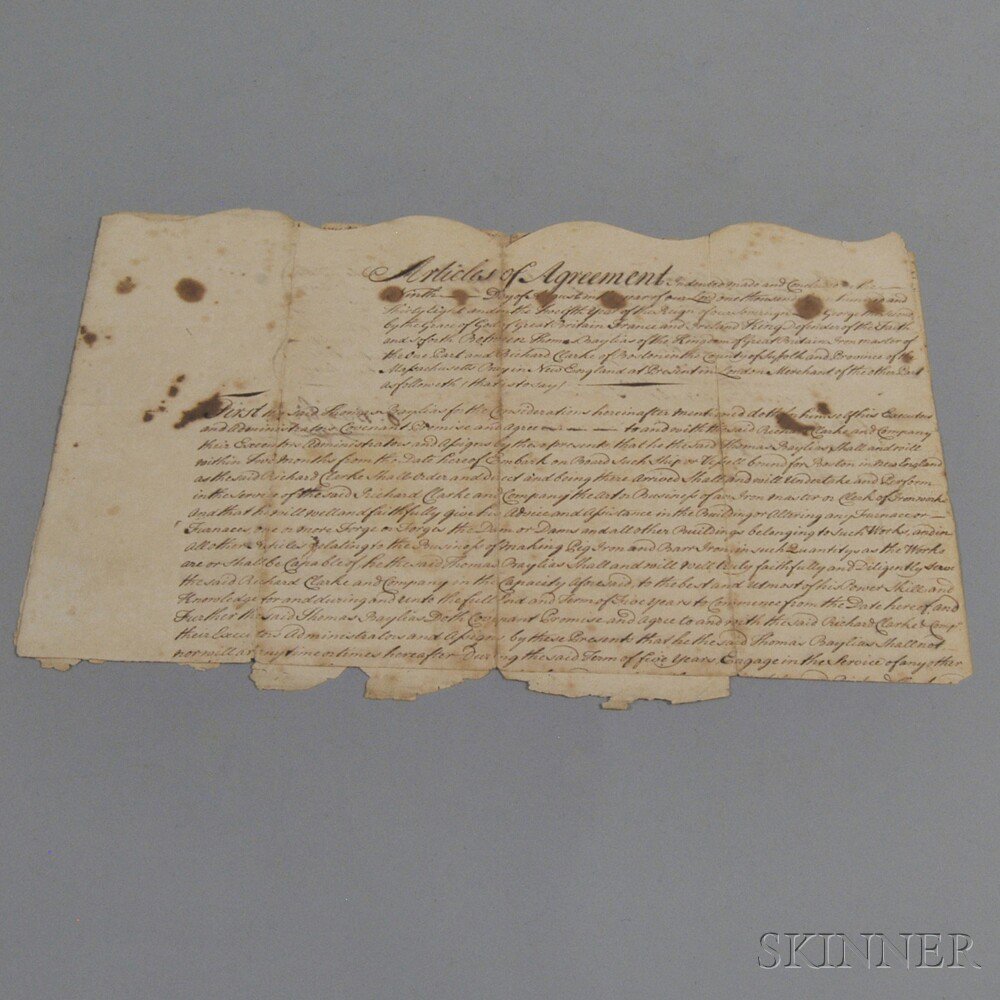 Articles of Agreement Indented made and Concluded the
Ninth Day of August in the year of our Lord one Thousand Seven hundred and
thirty Eight and in the Twelfth Year of the Reign of our Sovereign Lord George the Second
by the Grace of God of Great Britain France and Ireland King Defender of the Faith
and so forth Between Thomas Baylias of the Kingdom of Great Britain Iron master of
the One Part and Richard Clarke of Boston in the County of Suffolk and Province of the
Massachusetts Bay in New England at Present in London Merchant of the other Part
as followeth (that is to say)
First the said Thomas Baylias for the Considerations hereinafter mentioned doth for himself his Executors
and Administrators Covenant Promise and Agree to and with the said Richard Clarke and Company
their Executors Administrators and Assigns by these presents that he the said Thomas Baylias Shall and will
within Two Months from the Date hereof Embark on Board Such Ship or Vessell bound for Boston in New England
as the said Richard Clarke Shall Order and Direct and being there Arrived Shall and will Undertake and Perform
in the Service of the said Richard Clarke and Company the Art or Business of an Iron master or Clerk of Ironworks
And that he will well and faithfully give his Advice and Assistance in the Building or Altering any Furnace or
Furnaces one or more Forge or Forges the Dam or Dams and all other Buildings belonging to Such Works, and in
all other Articles relating to the Business of Making Pig Iron and Barr Iron in such Quantitys as the Works
are or Shall be Capable of he the said Thomas Baylias Shall and will Well truly faithfully and Diligently serve
the said Richard Clarke and Company in the Capacity aforesaid to the best and utmost of his Power Skill and
Knowledge for and during and unto the full End and Term of Five Years to Commence from the Date hereof and
Further the said Thomas Baylias Doth Covenant Promise and Agree to and with the said Richard Clarke & Compy
their Executors Administrators and Assigns by these Presents that he the said Thomas Baylias Shall not
nor will at any time or times hereafter During the said Term of five Years Engage in the Service of any other
SKINNER